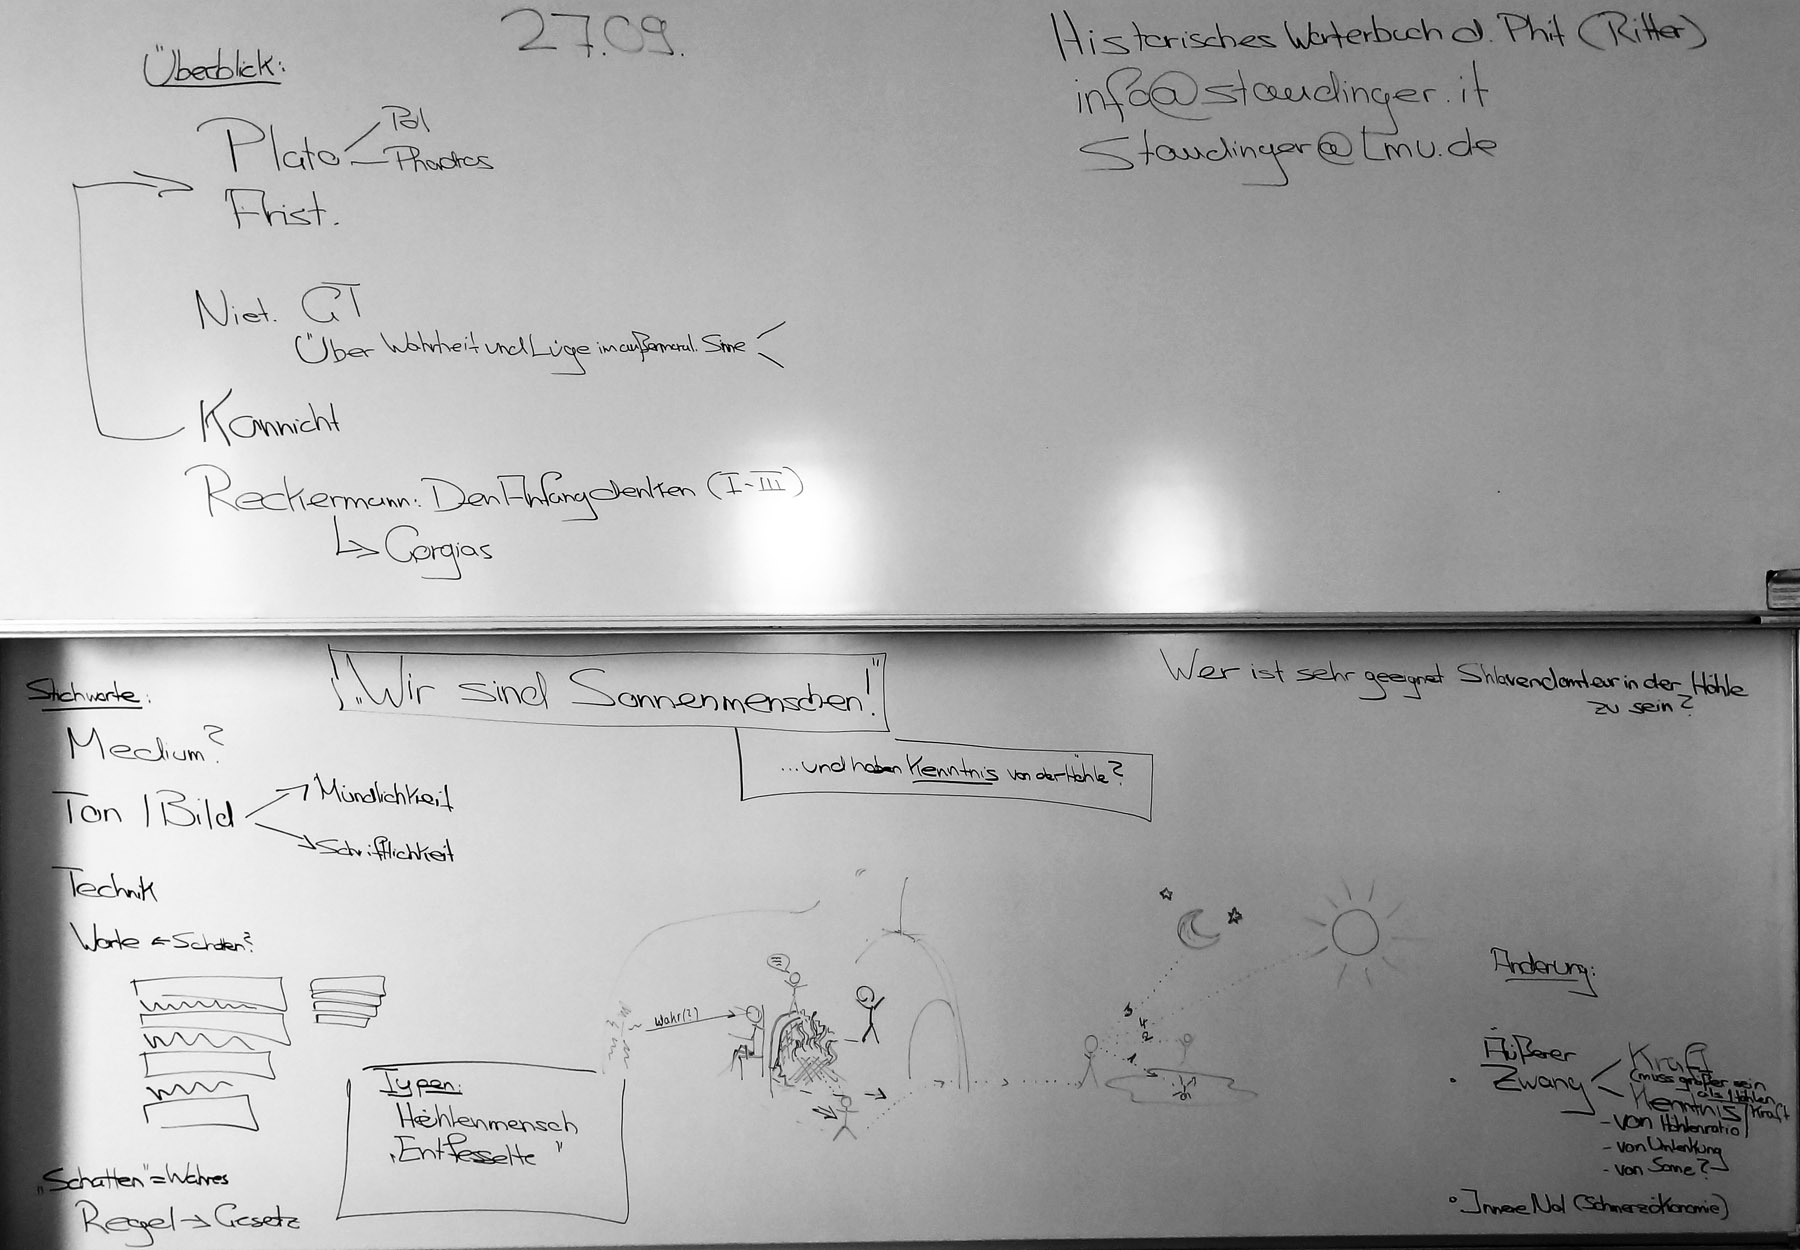 27.09.
Überblick:
Plato
Pol
Phaidros
Arist.
Niet. GT
Über Wahrheit und Lüge im außermoral. Sinne
Kannicht
Reckermann: Den Anfang denken (I-III)
Gorgias
Historisches Wörterbuch d. Phil (Ritter)
info@staudinger.it
Staudinger@lmu.de
Stichworte:
Medium?
Ton / Bild
Mündlichkeit
Schriftlichkeit
Technik
Worte ← Schatten?
„Schatten" = Wahres
Regel → Gesetz
„Wir sind Sonnenmenschen!"
...und haben Kenntnis von der Höhle?
Typen:
Höhlenmensch
„Entfesselte"
Wahr(?)
1
2
3
4
5
Wer ist sehr geeignet Sklavendompteur in der Höhle
zu sein?
Änderung:
• Äußerer
Zwang
Kraft
(muss größer sein
als Höhlen
kraft
Kenntnis
- von Höhlenratio
- von Umlenkung
- von Sonne?
• Innere Not (Schmerzökonomie)